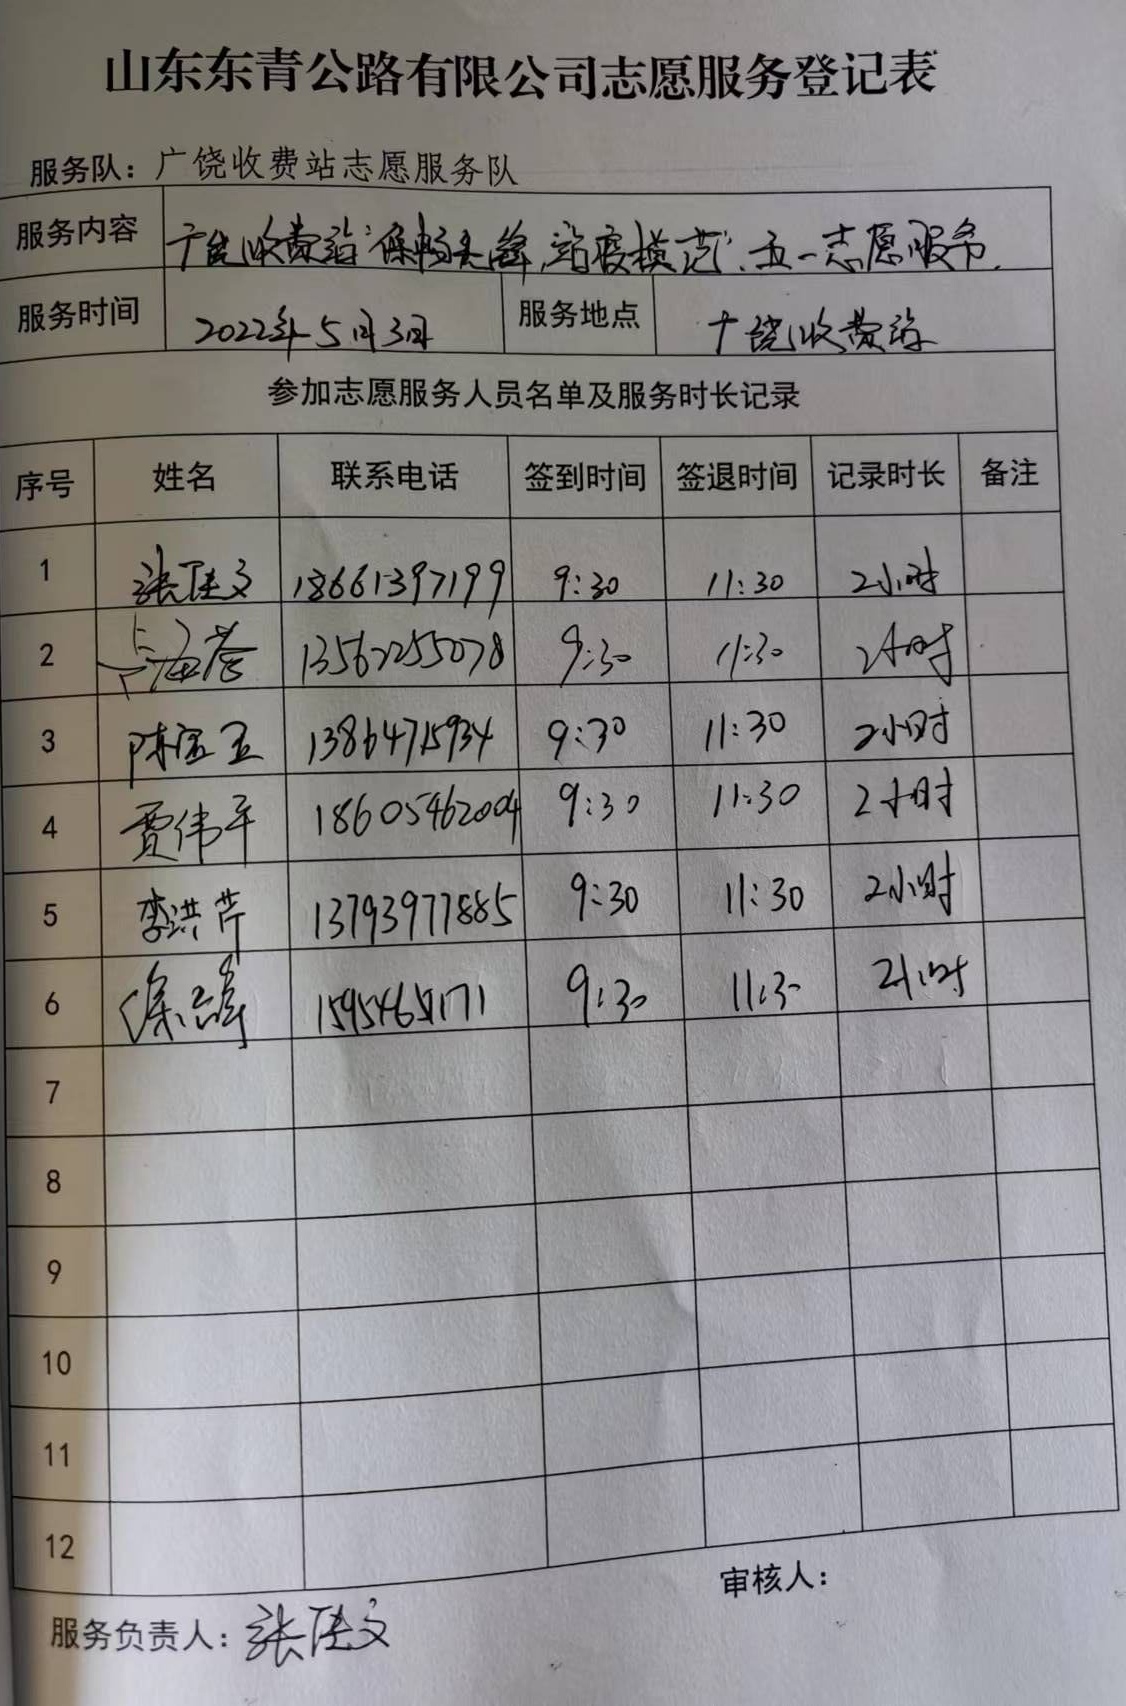 山东东青公路有限公司志愿服务登记表
服务队：广饶收费站志愿服务队
服务内容 广饶收费站"保畅先锋，站疫模范"，五一志愿服务.
服务时间 2022年5月3日 服务地点 广饶收费站
参加志愿服务人员名单及服务时长记录
序号 姓名 联系电话 签到时间 签退时间 记录时长 备注
1 张佳文 18661397199 9:30 11:30 2小时
2 13562255078 9:30 11:30 2小时
3 陈宝玉 13864715934 9:30 11:30 2小时
4 贾伟平 18605462004 9:30 11:30 2小时
5 李洪芹 13793977885 9:30 11:30 2小时
6 9:30 11:30 2小时
7
8
9
10
11
12
审核人：
服务负责人：张佳文